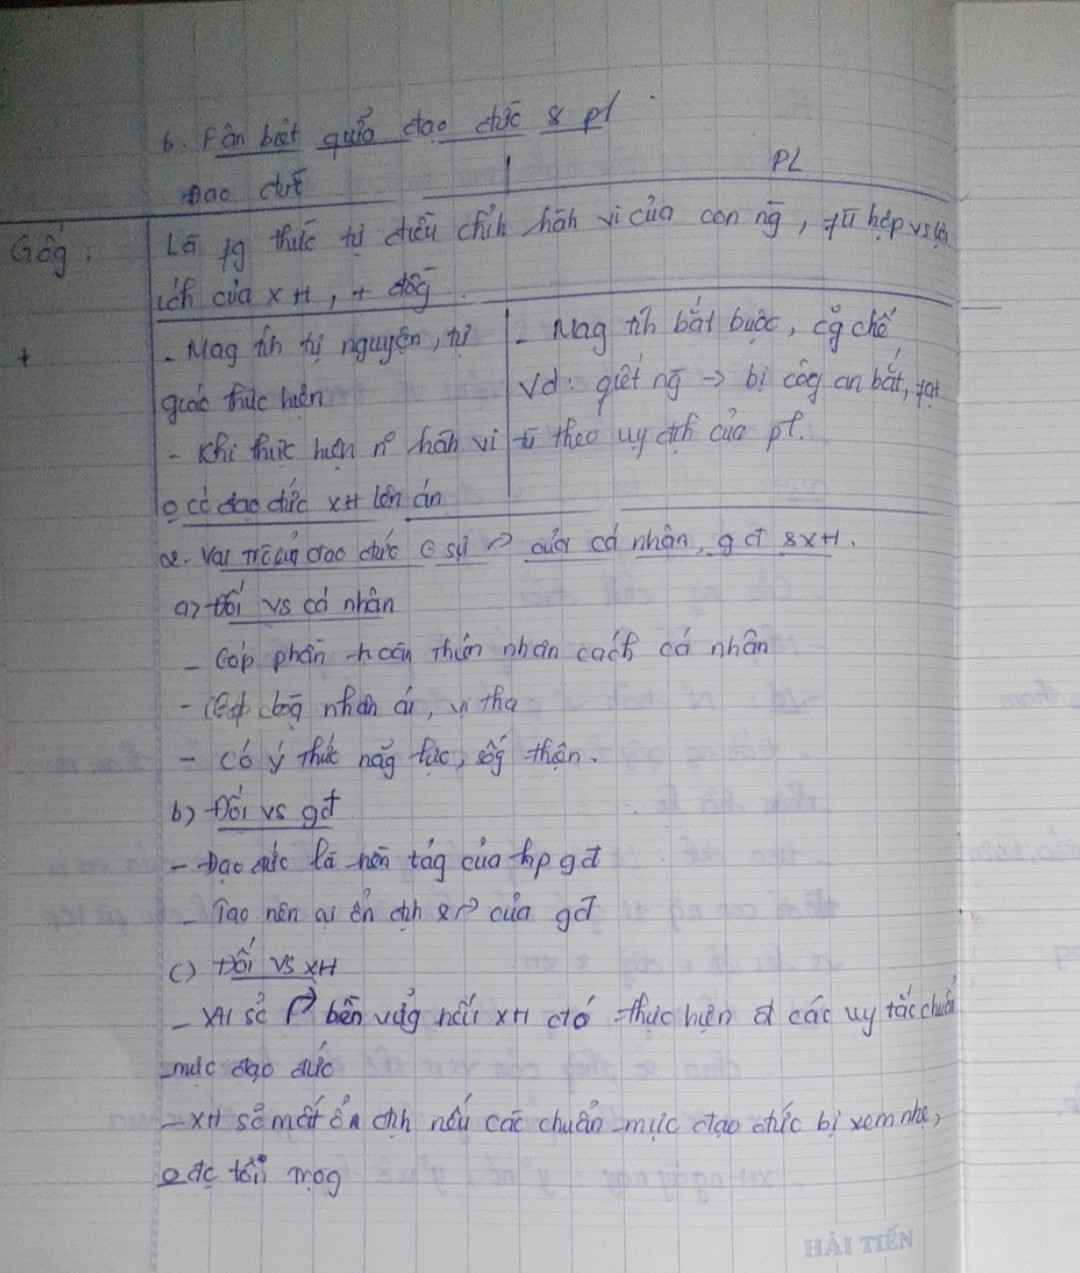 b. Fân biệt giữa đạo đức & pl
Đạo đức PL
Giốg: Là fg thức tự điều chỉh hàh vi của con ng̃, fù hợp vs lợi
ích của XH, + đồg.
+ - Mag tíh tự nguyện, tự - Mag tíh bắt buộc, cg̃ chế
giác thực hiện Vd: giết ng̃ -> bị côg an bắt, fạt
- Khi thực hiện n° hàh vi tù theo uy địh của pl.
o có đạo đức XH lên án
2. Vai trò của đạo đức sự của cá nhân, gđ & XH.
a) Đối vs cá nhân
- Góp phần hoàn thiện nhân cách cá nhân
- lòg nhân ái, vị tha
- Có ý thức năg lực, sốg thiện.
b) Đối vs gđ
- Đạo đức là nền tảg của hp gđ
- Tạo nên ổn địh & của gđ
c) Đối vs XH
- XH sẽ bền vữg nếu XH đó thực hiện các uy tắc chuẩn
mực đạo đức
- XH sẽ mất ổn địh nếu các chuẩn mực đạo đức bị xem nhẹ,
o đc tôn trọg
HẢI TIẾN